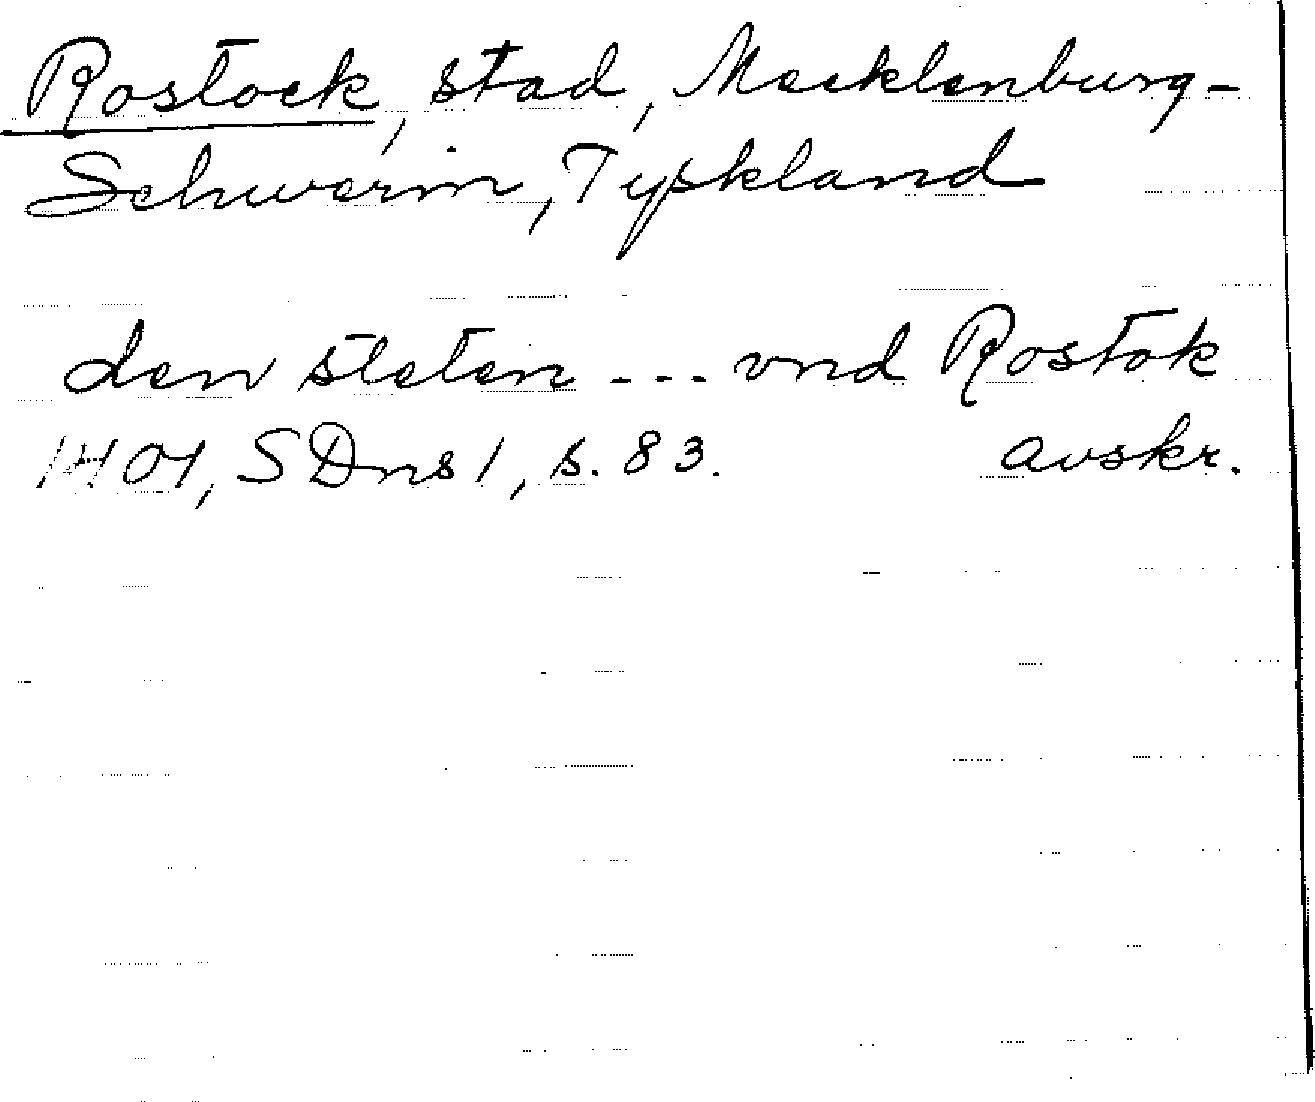 Rostock, stad, Mecklenburg-
Schwerin, Tyskland
den steten --- vnd Rostok
1401, SDns 1, s. 83. avskr.